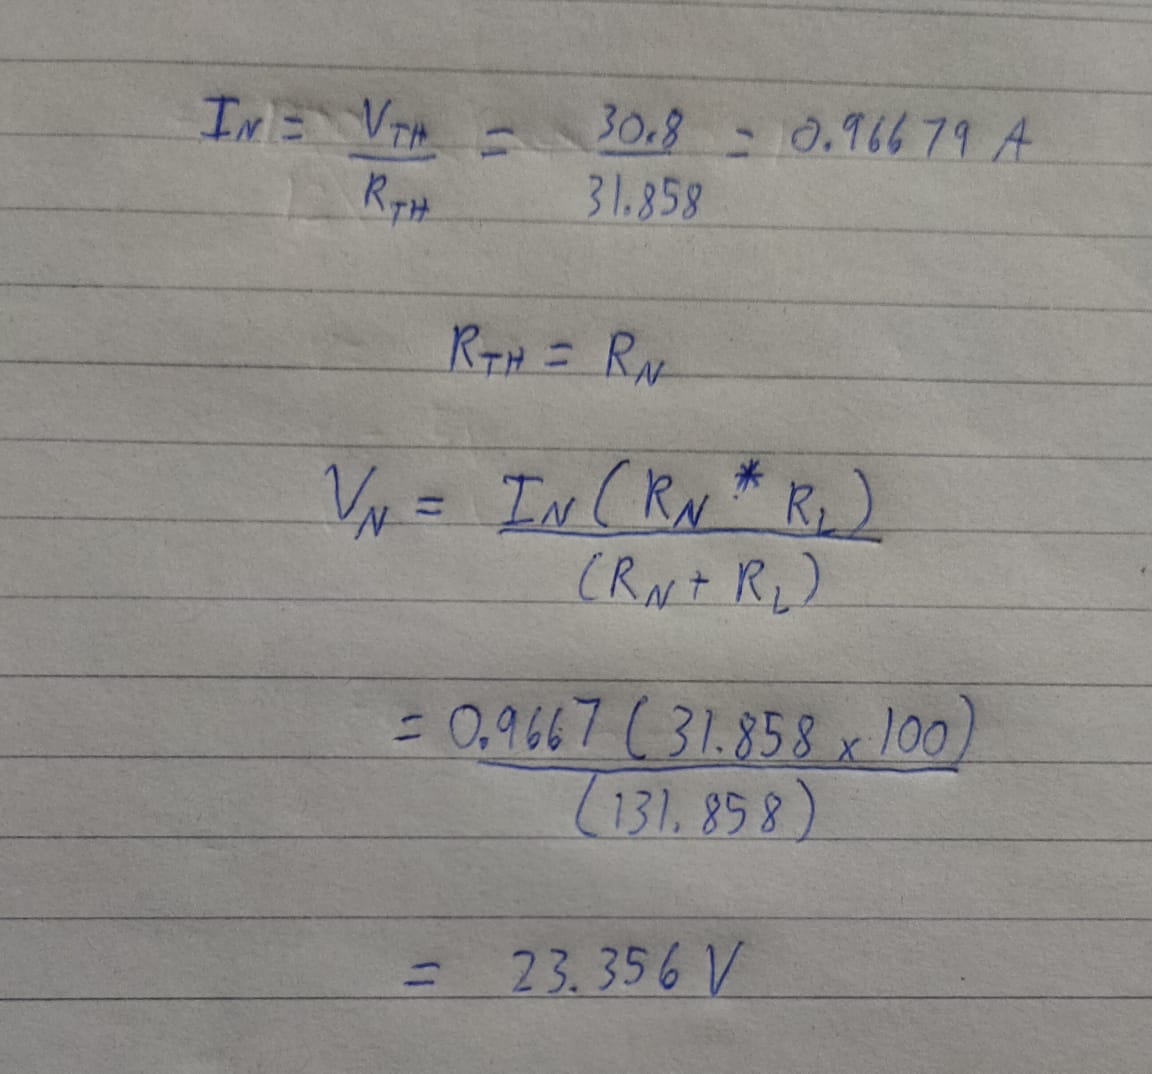 I_N = V_TH / R_TH = 30.8 / 31.858 = 0.96679 A
R_TH = R_N
V_N = I_N (R_N * R_L) / (R_N + R_L)
= 0.9667 (31.858 x 100) / (131.858)
= 23.356 V